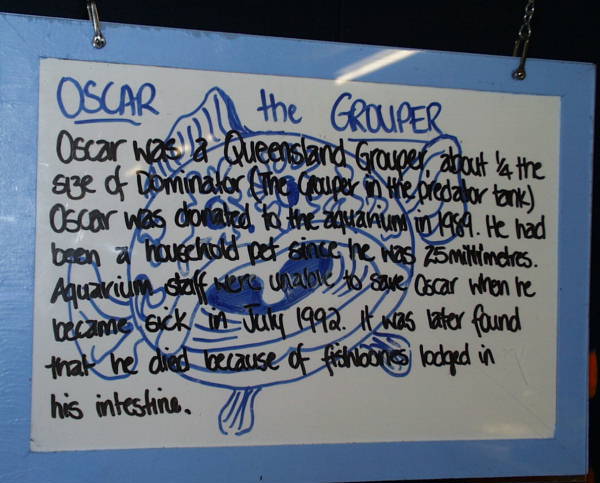 OSCAR the GROUPER
Oscar was a Queensland Grouper, about 1/4 the
size of Dominator (The Grouper in the predator tank)
Oscar was donated to the aquarium in 1989. He had
been a household pet since he was 25 millimetres.
Aquarium staff were unable to save Oscar when he
became sick in July 1992. It was later found
that he died because of fishbones lodged in
his intestine.